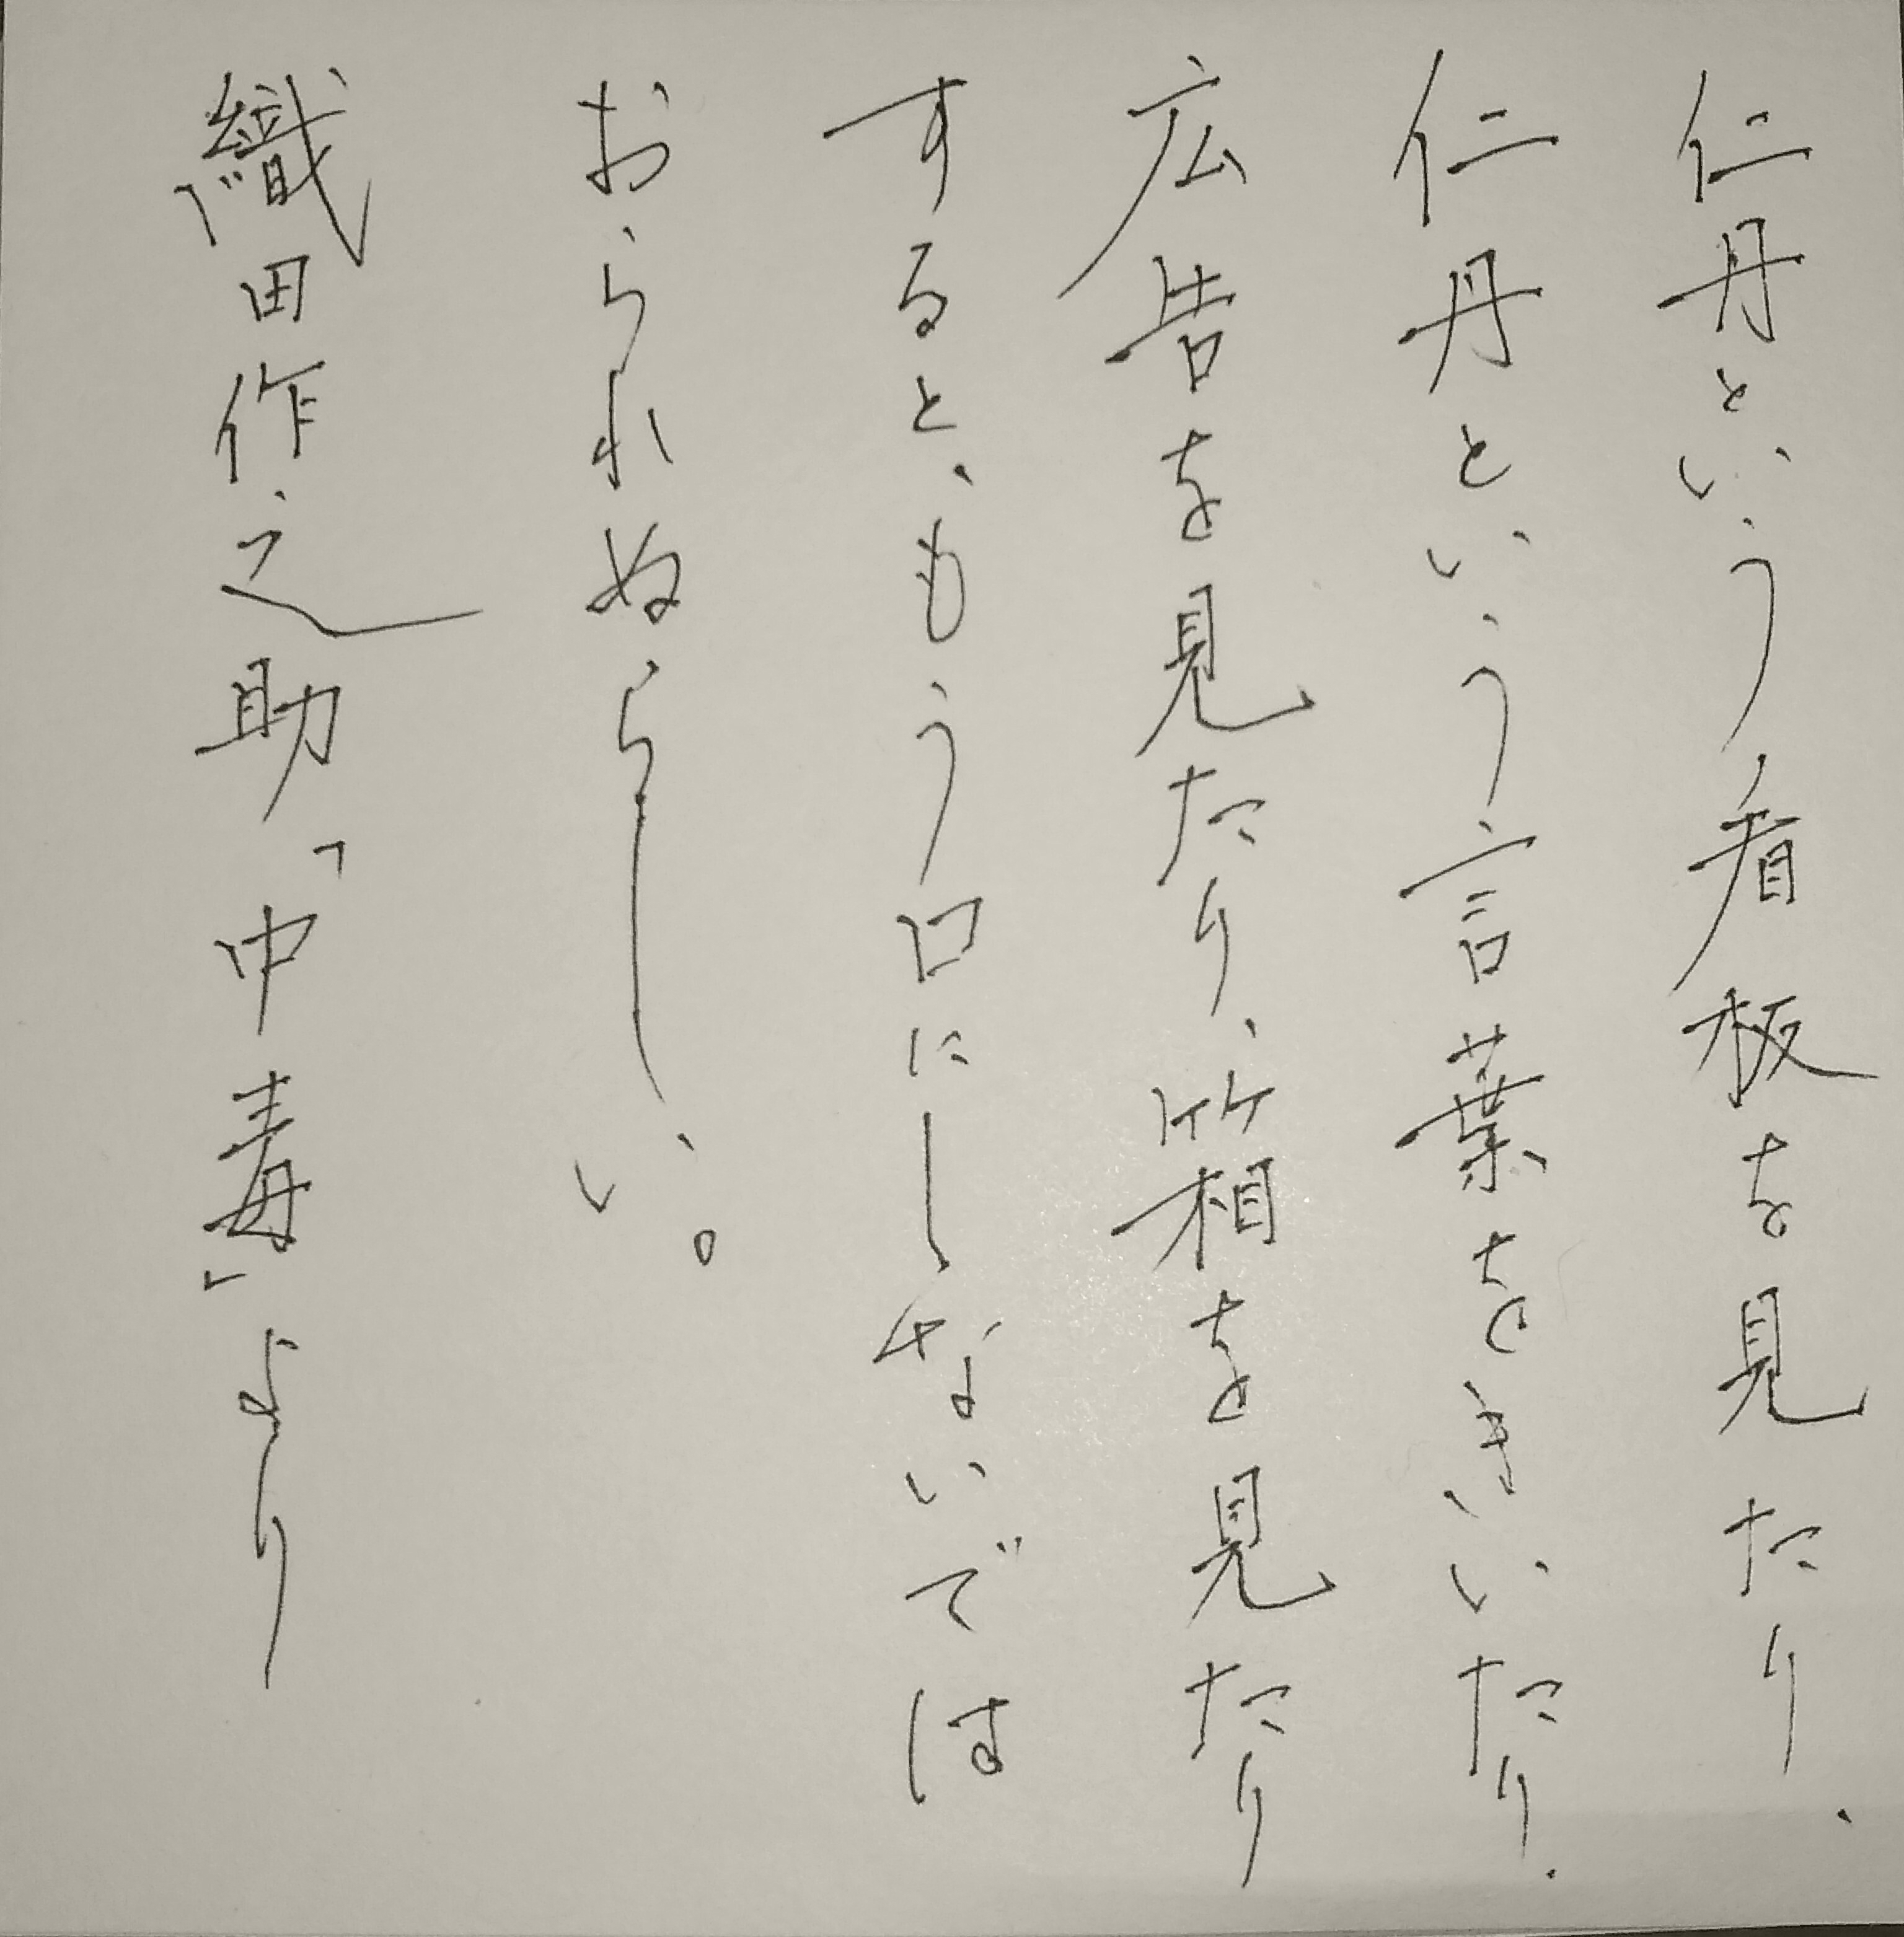 仁丹という看板を見たり、
仁丹という言葉をきいたり、
広告を見たり、箱を見たり
すると、もう口にしないでは
おられぬらしい。
織田作之助「中毒」より